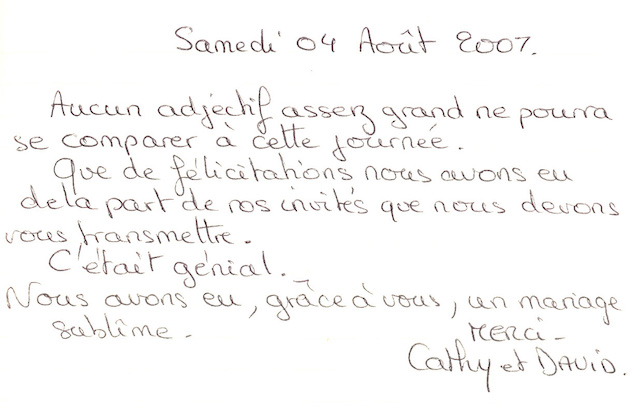 Samedi 04 Août 2007.
Aucun adjectif assez grand ne pourra
se comparer à cette journée.
Que de félicitations nous avons eu
de la part de nos invités que nous devons
vous transmettre.
C'était génial.
Nous avons eu, grâce à vous, un mariage
sublîme.
MERCI -
Cathy et DAVID.